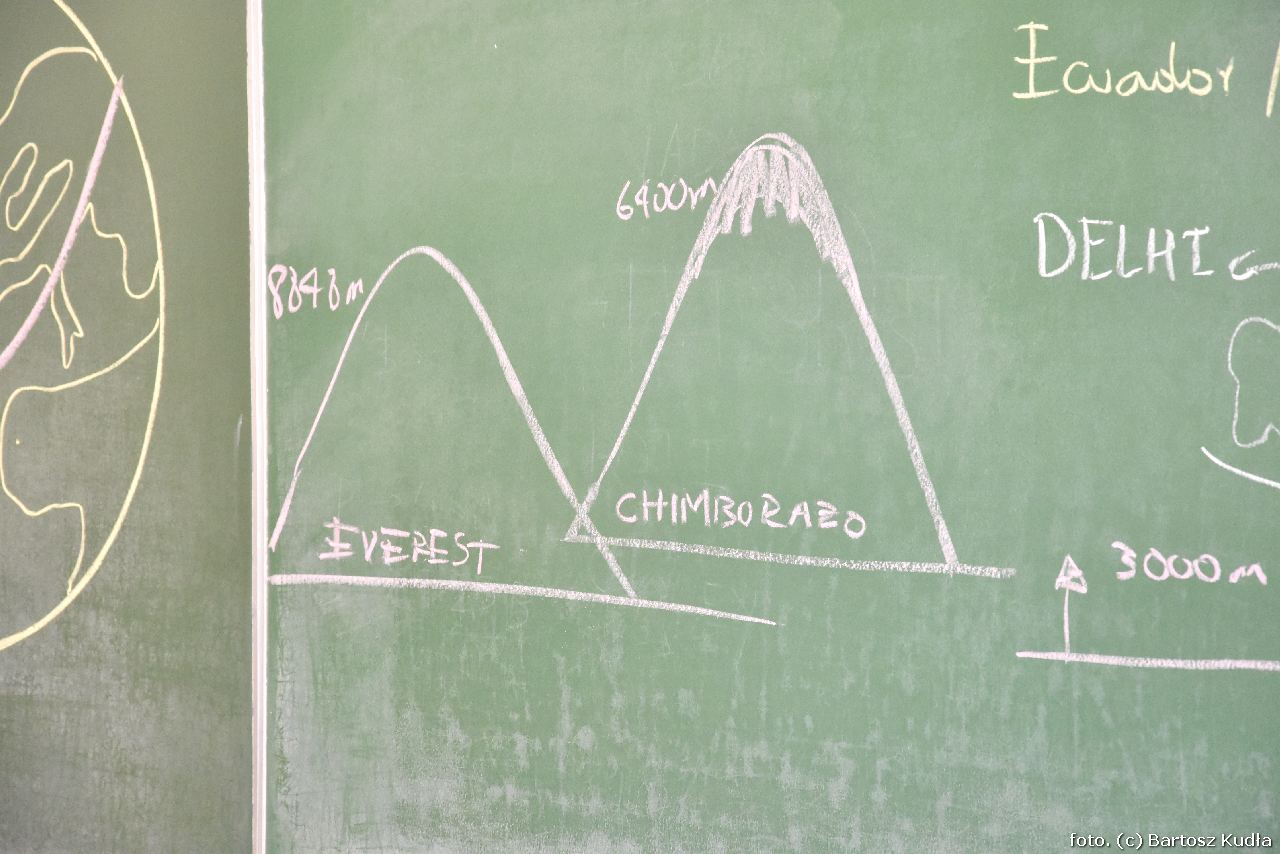 Ecuador /
6400m
DELHI
8848m
CHIMBORAZO
EVEREST
3000m
foto. (c) Bartosz Kudła